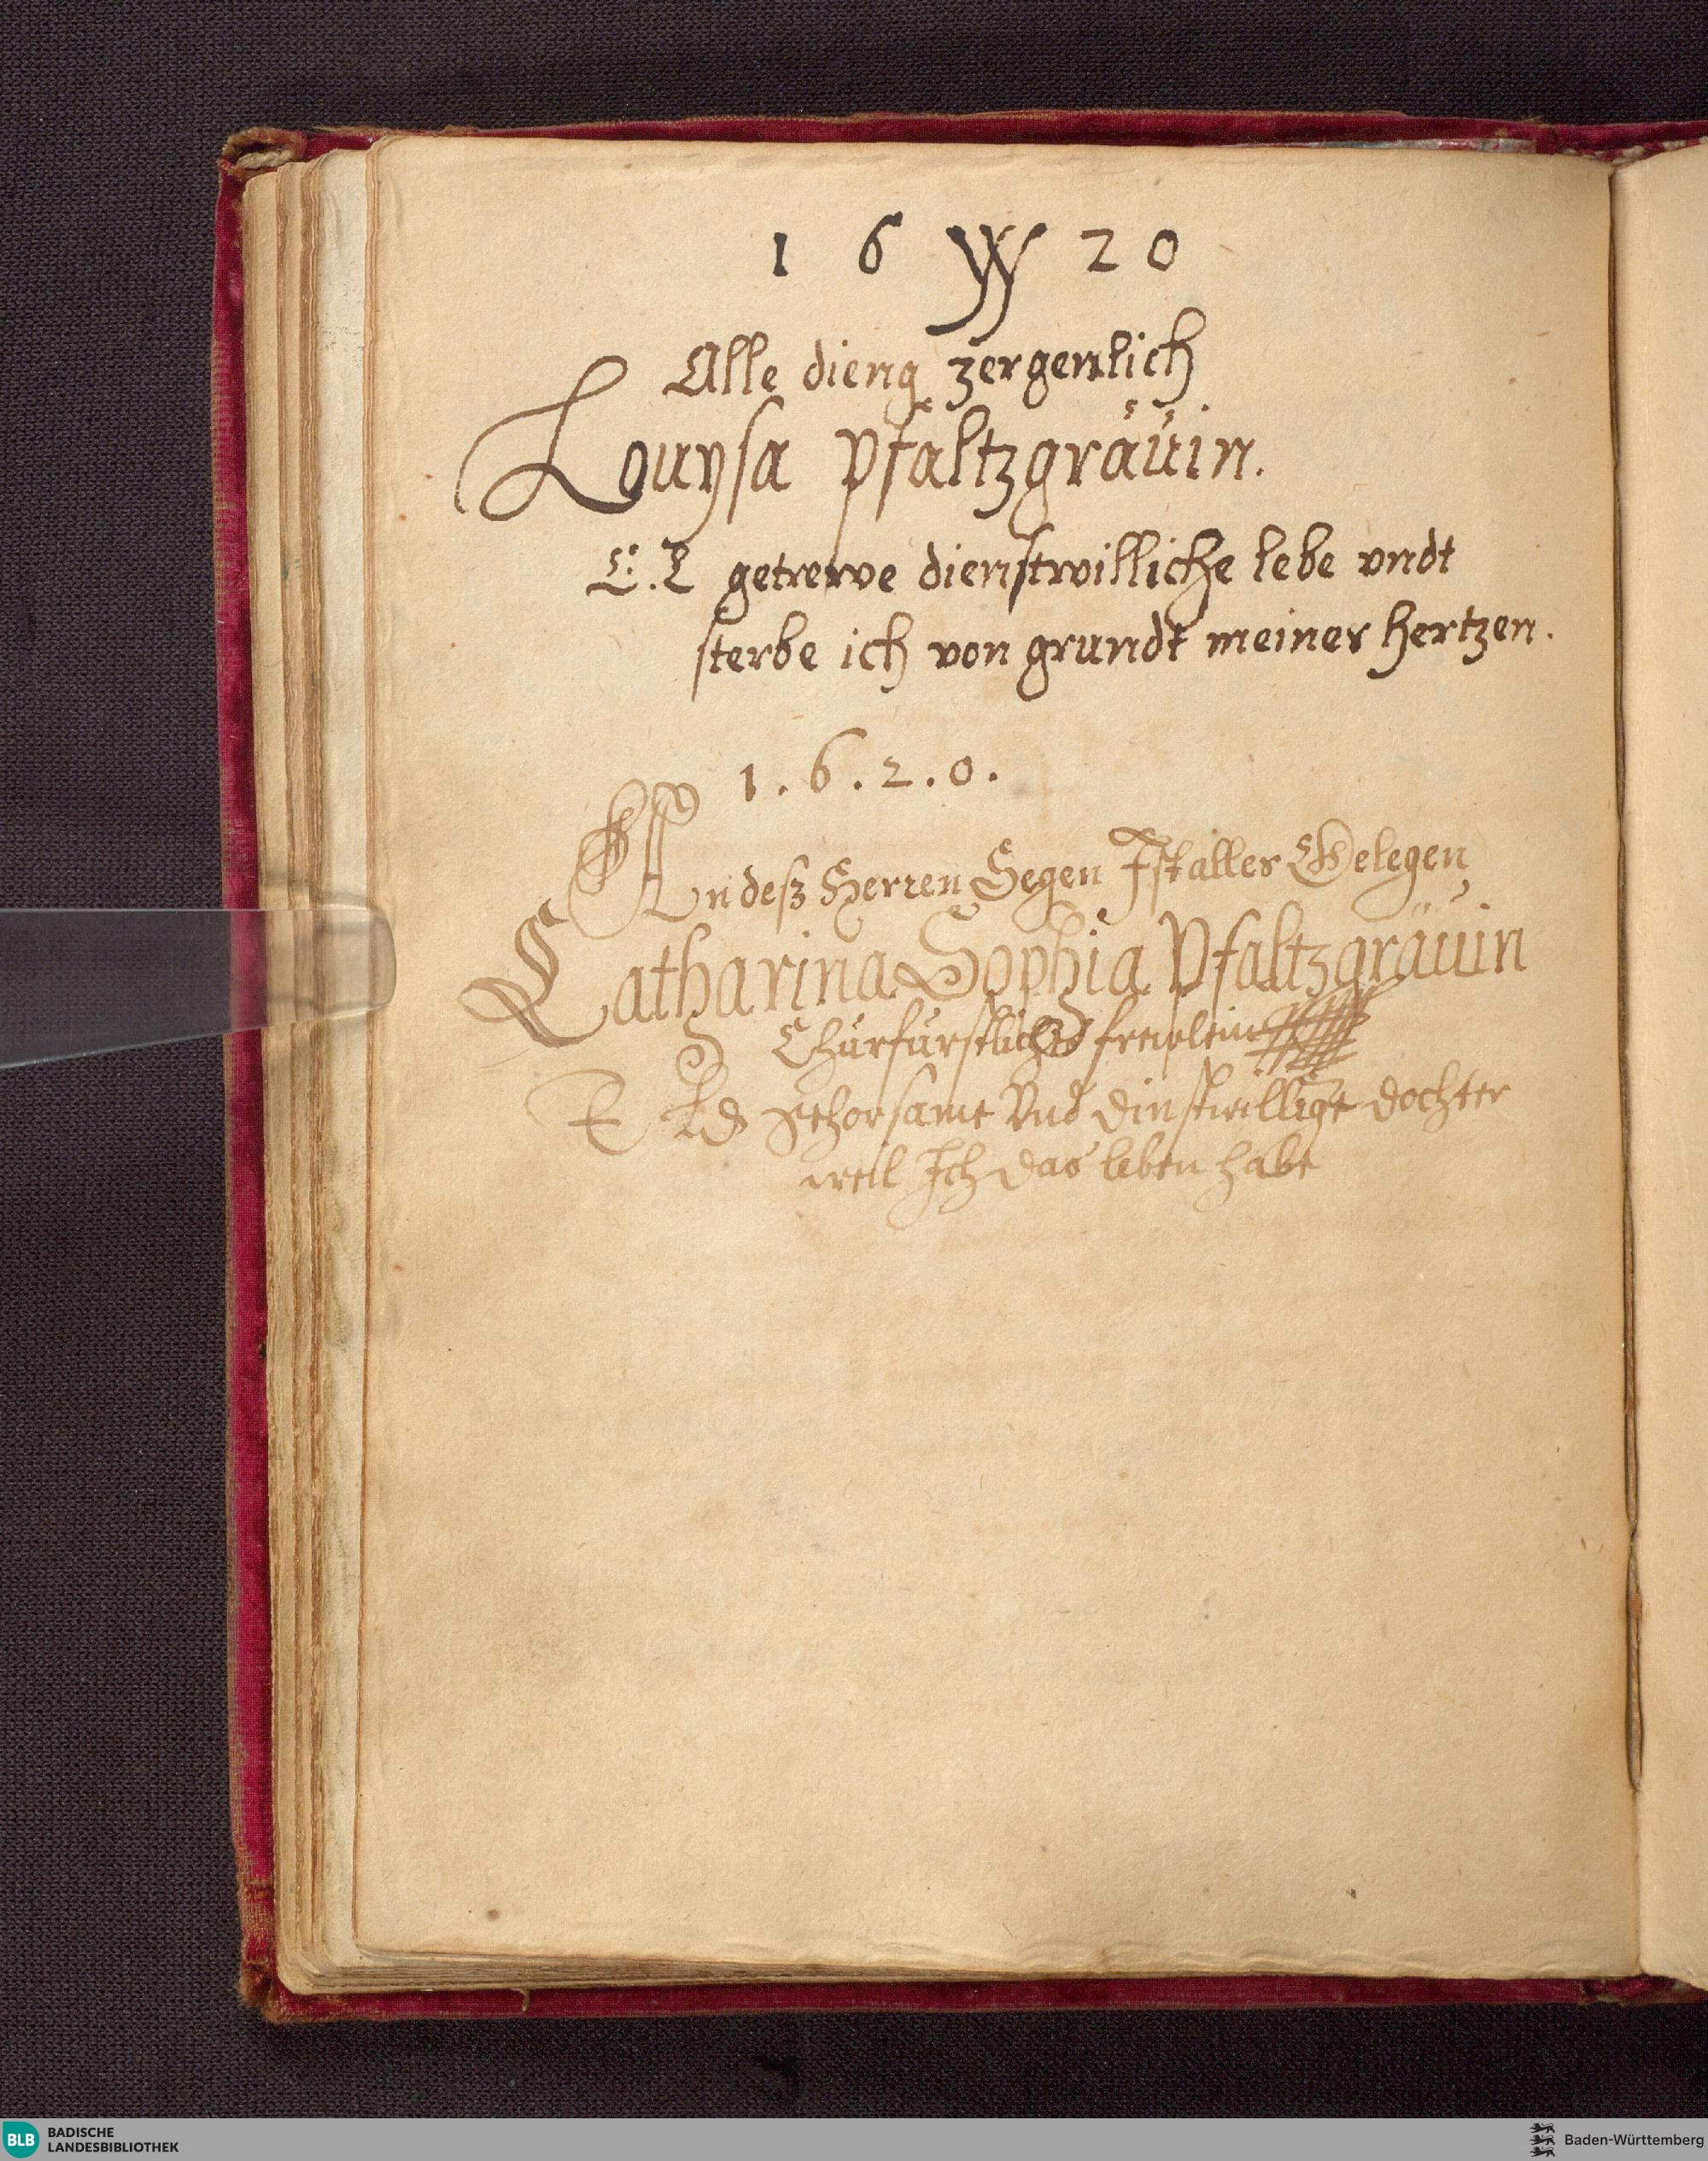 16 W 20
Alle dieng zergenlich
Louysa pfaltzgräuin.
E. L getrewe dienstwilliche lebe vndt
sterbe ich von grundt meines hertzen.
1.6.2.0.
An desz Herren Segen Ist alles Gelegen
Catharina Sophia Pfaltzgräuin
Churfürstliches frewlein
E Ld gehorsame Vnd dinstwillige dochter
weil Ich das leben habe
BLB BADISCHE LANDESBIBLIOTHEK
Baden-Württemberg